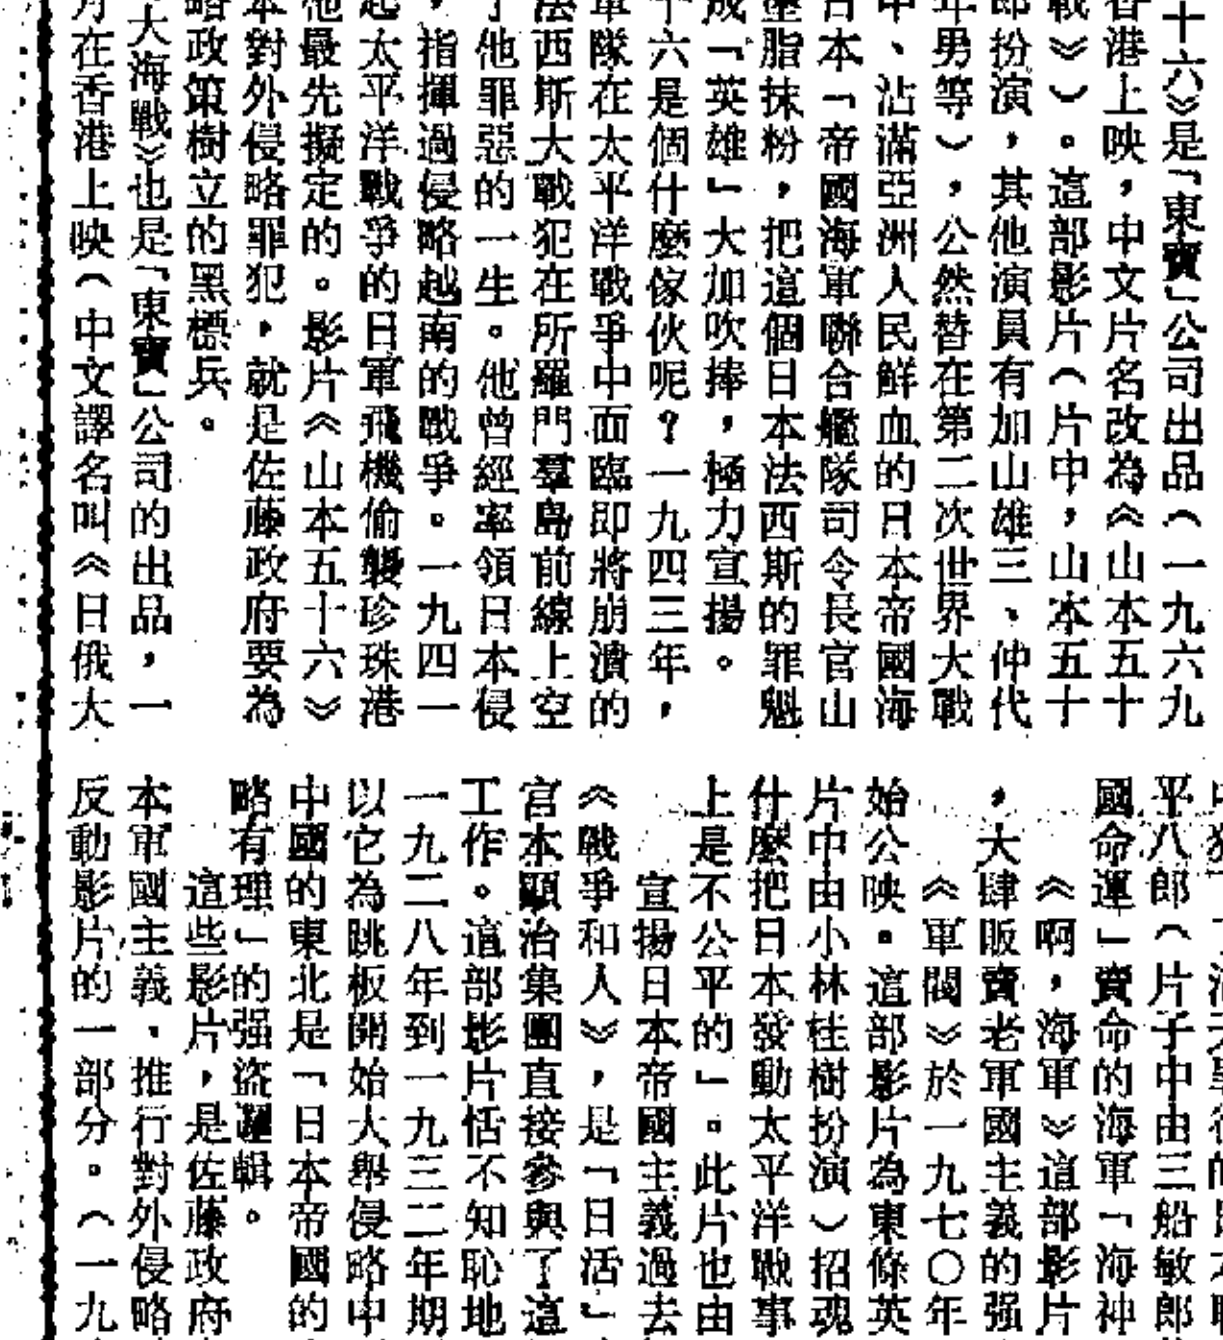 十六》是「東寶」公司出品（一九六九
香港上映，中文片名改為《山本五十
戰》）。這部影片（片中，山本五十
郎扮演，其他演員有加山雄三、仲代
年男等），公然替在第二次世界大戰
中、沾滿亞洲人民鮮血的日本帝國海
日本「帝國海軍聯合艦隊司令長官山
塗脂抹粉，把這個日本法西斯的罪魁
成「英雄」大加吹捧，極力宣揚。
十六是個什麼傢伙呢？一九四三年，
軍隊在太平洋戰爭中面臨即將崩潰的
法西斯大戰犯在所羅門羣島前線上空
了他罪惡的一生。他曾經率領日本侵
，指揮過侵略越南的戰爭。一九四一
起太平洋戰爭的日軍飛機偷襲珍珠港
他最先擬定的。影片《山本五十六》
本對外侵略罪犯，就是佐藤政府要為
略政策樹立的黑標兵。
大海戰》也是「東寶」公司的出品，一
月在香港上映（中文譯名叫《日俄大
平八郎（片子中由三船敏郎
國命運」賣命的海軍「海神
《啊，海軍》這部影片
，大肆販賣老軍國主義的强
《軍閥》於一九七〇年
始公映。這部影片為東條英
片中由小林桂樹扮演）招魂
什麼把日本發動太平洋戰事
上是不公平的」。此片也由
宣揚日本帝國主義過去
《戰爭和人》，是「日活」
宮本顯治集團直接參與了這
工作。這部影片恬不知恥地
一九二八年到一九三二年期
以它為跳板開始大舉侵略中
中國的東北是「日本帝國的
略有理」的强盜邏輯。
這些影片，是佐藤政府
本軍國主義，推行對外侵略
反動影片的一部分。（一九